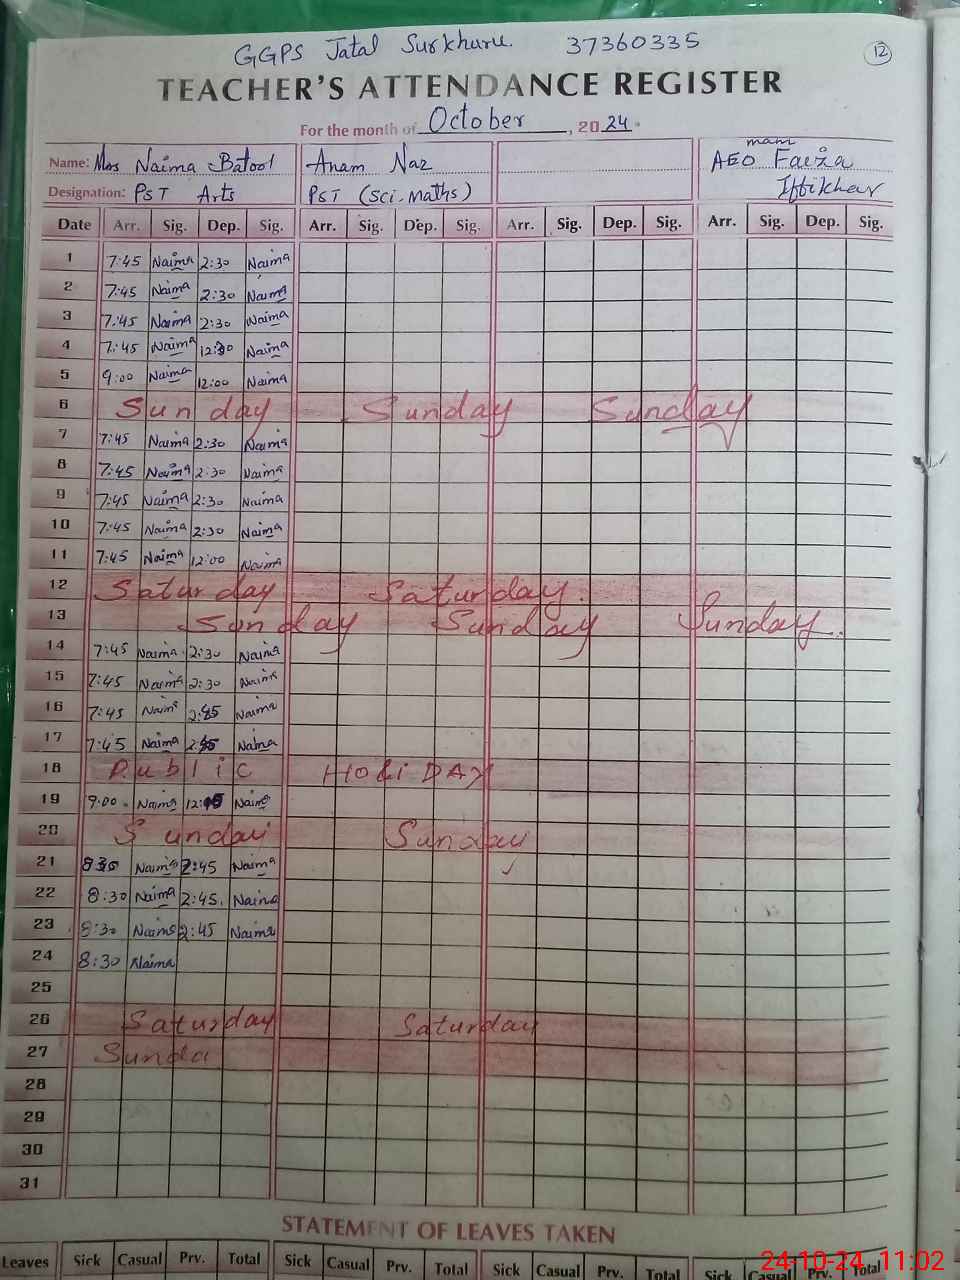 GGPS Jatal Surkhuru. 37360335
12
TEACHER'S ATTENDANCE REGISTER
For the month of October, 2024.
Name: Mrs Naima Batool Anam Naz AEO mam Faeiza
Designation: PST Arts PST (Sci-Maths) Iftikhar
Date Arr. Sig. Dep. Sig. Arr. Sig. Dep. Sig. Arr. Sig. Dep. Sig. Arr. Sig. Dep. Sig.
1 7:45 Naima 2:30 Naima
2 7:45 Naima 2:30 Naima
3 7:45 Naima 2:30 Naima
4 7:45 Naima 12:30 Naima
5 9:00 Naima 12:00 Naima
6 Sunday Sunday Sunday
7 7:45 Naima 2:30 Naima
8 7:45 Naima 2:30 Naima
9 7:45 Naima 2:30 Naima
10 7:45 Naima 2:30 Naima
11 7:45 Naima 12:00 Naima
12 Saturday Saturday.
13 Sunday Sunday Sunday.
14 7:45 Naima 2:30 Naima
15 7:45 Naima 2:30 Naima
16 7:45 Naima Naima
17 7:45 Naima Naima
18 Public HOliDAY
19 9:00 Naima Naima
20 Sunday Sunday
21 Naima 2:45 Naima
22 8:30 Naima 2:45. Naima
23 8:30 Naima 2:45 Naima
24 8:30 Naima
25
26 Saturday Saturday
27 Sunda
28
29
30
31
STATEMENT OF LEAVES TAKEN
Leaves Sick Casual Prv. Total Sick Casual Prv. Total Sick Casual Prv. Total Sick Casual Prv. Total
24-10-24 11:02